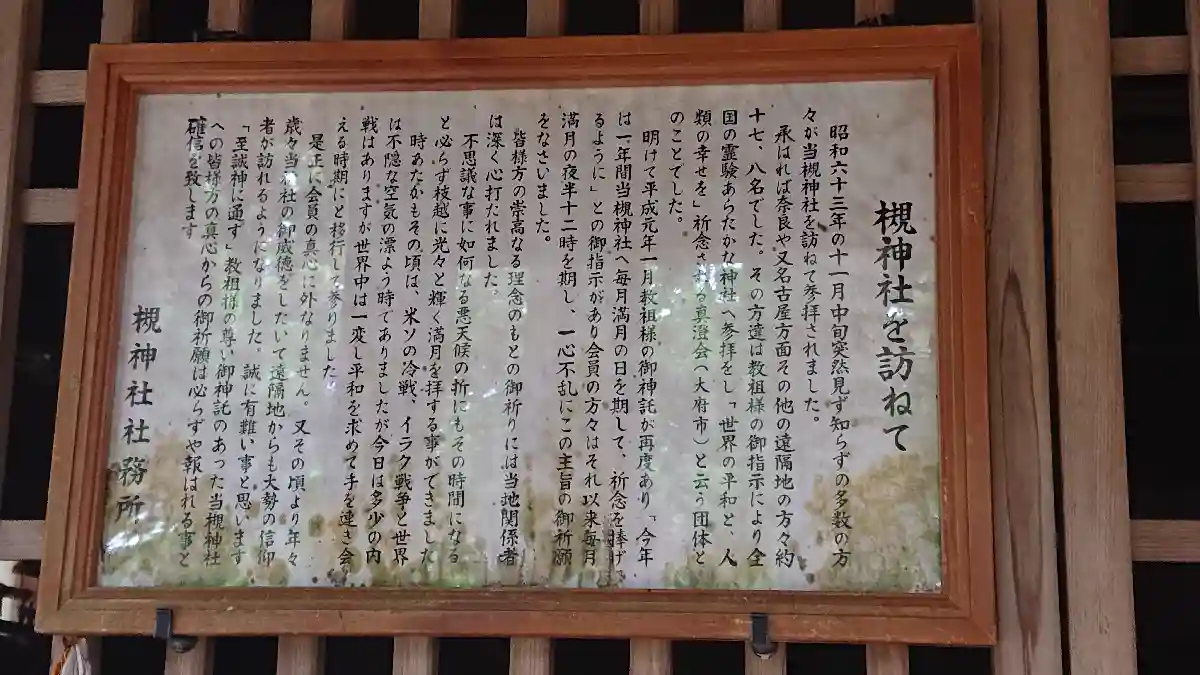 槻神社を訪ねて
昭和六十三年の十一月中旬突然見ず知らずの多数の方
々が当槻神社を訪ねて参拝されました。
承はれば奈良や又名古屋方面その他の遠隔地の方々約
十七、八名でした。その方達は教祖様の御指示により全
国の霊験あらたかな神社へ参拝をし「世界の平和と、人
類の幸せを」祈念される真澄会(大府市)と云う団体と
のことでした。
明けて平成元年一月教祖様の御神託が再度あり「今年
は一年間当槻神社へ毎月満月の日を期して、祈念を捧げ
るように」との御指示があり会員の方々はそれ以来毎月
満月の夜半十二時を期し、一心不乱にこの主旨の御祈願
をなさいました。
皆様方の崇高なる理念のもとの御祈りには当地関係者
は深く心打たれました。
不思議な事に如何なる悪天候の折にもその時間になる
と必らず枝越に光々と輝く満月を拝する事ができました
時あたかもその頃は、米ソの冷戦、イラク戦争と世界
は不隠な空気の漂よう時でありましたが今日は多少の内
戦はありますが世界中は一変し平和を求めて手を連き会
える時期にと移行して参りました。
是正に会員の真心に外なりません。又その頃より年々
歳々当神社の御威徳をしたいて遠隔地からも大勢の信仰
者が訪れるようになりました。誠に有難い事と思います
「至誠神に通ず」教祖様の尊い御神託のあった当槻神社
への皆様方の真心からの御祈願は必らずや報はれる事と
確信を致します
槻神社社務所